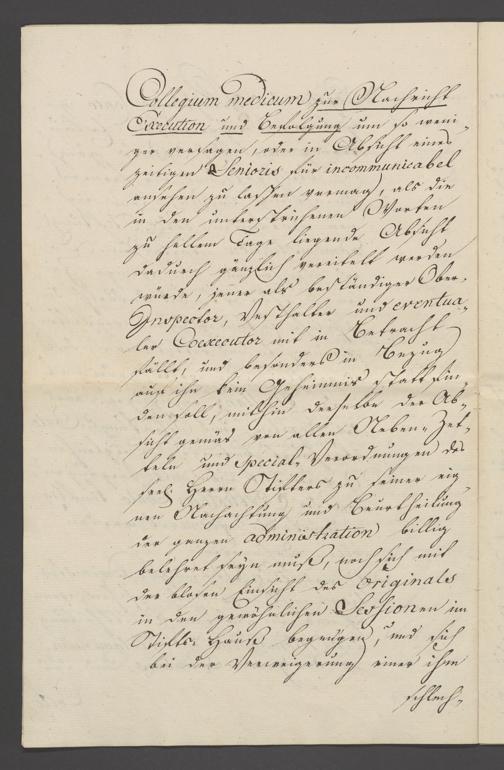 Collegium medicum zur Nachricht
Execution und Befolgung um so weni-
ger versagen, oder in Absicht eines
zeitigen Senioris für incommunicabel
ansehen zu lassen vermag, als die
in den unterstrichenen Worten
zu hellem Tage liegende Absicht
dadurch gänzlich vereitelt werden
würde, jener als beständiger Ober-
Inspector, Vesthalter und eventua-
ler Coexecutor mit in Betracht
fällt, und besonders in Bezug
auf ihn kein Geheimnis statt fin-
den soll, mithin derselbe der Ab-
sicht gemäs von allen Neben-Zet-
teln und special-Verordnungen des
seel. Herrn Stifters zu seiner eig-
nen Nachachtung und Beurtheilung
der ganzen administration billig
belehret seyn muß, noch sich mit
der blosen Einsicht des Originals
in den gewöhnlichen Sessionen im
Stifts-Hause begnügen, und sich
bei der Verweigerung einer ihm
schlech-